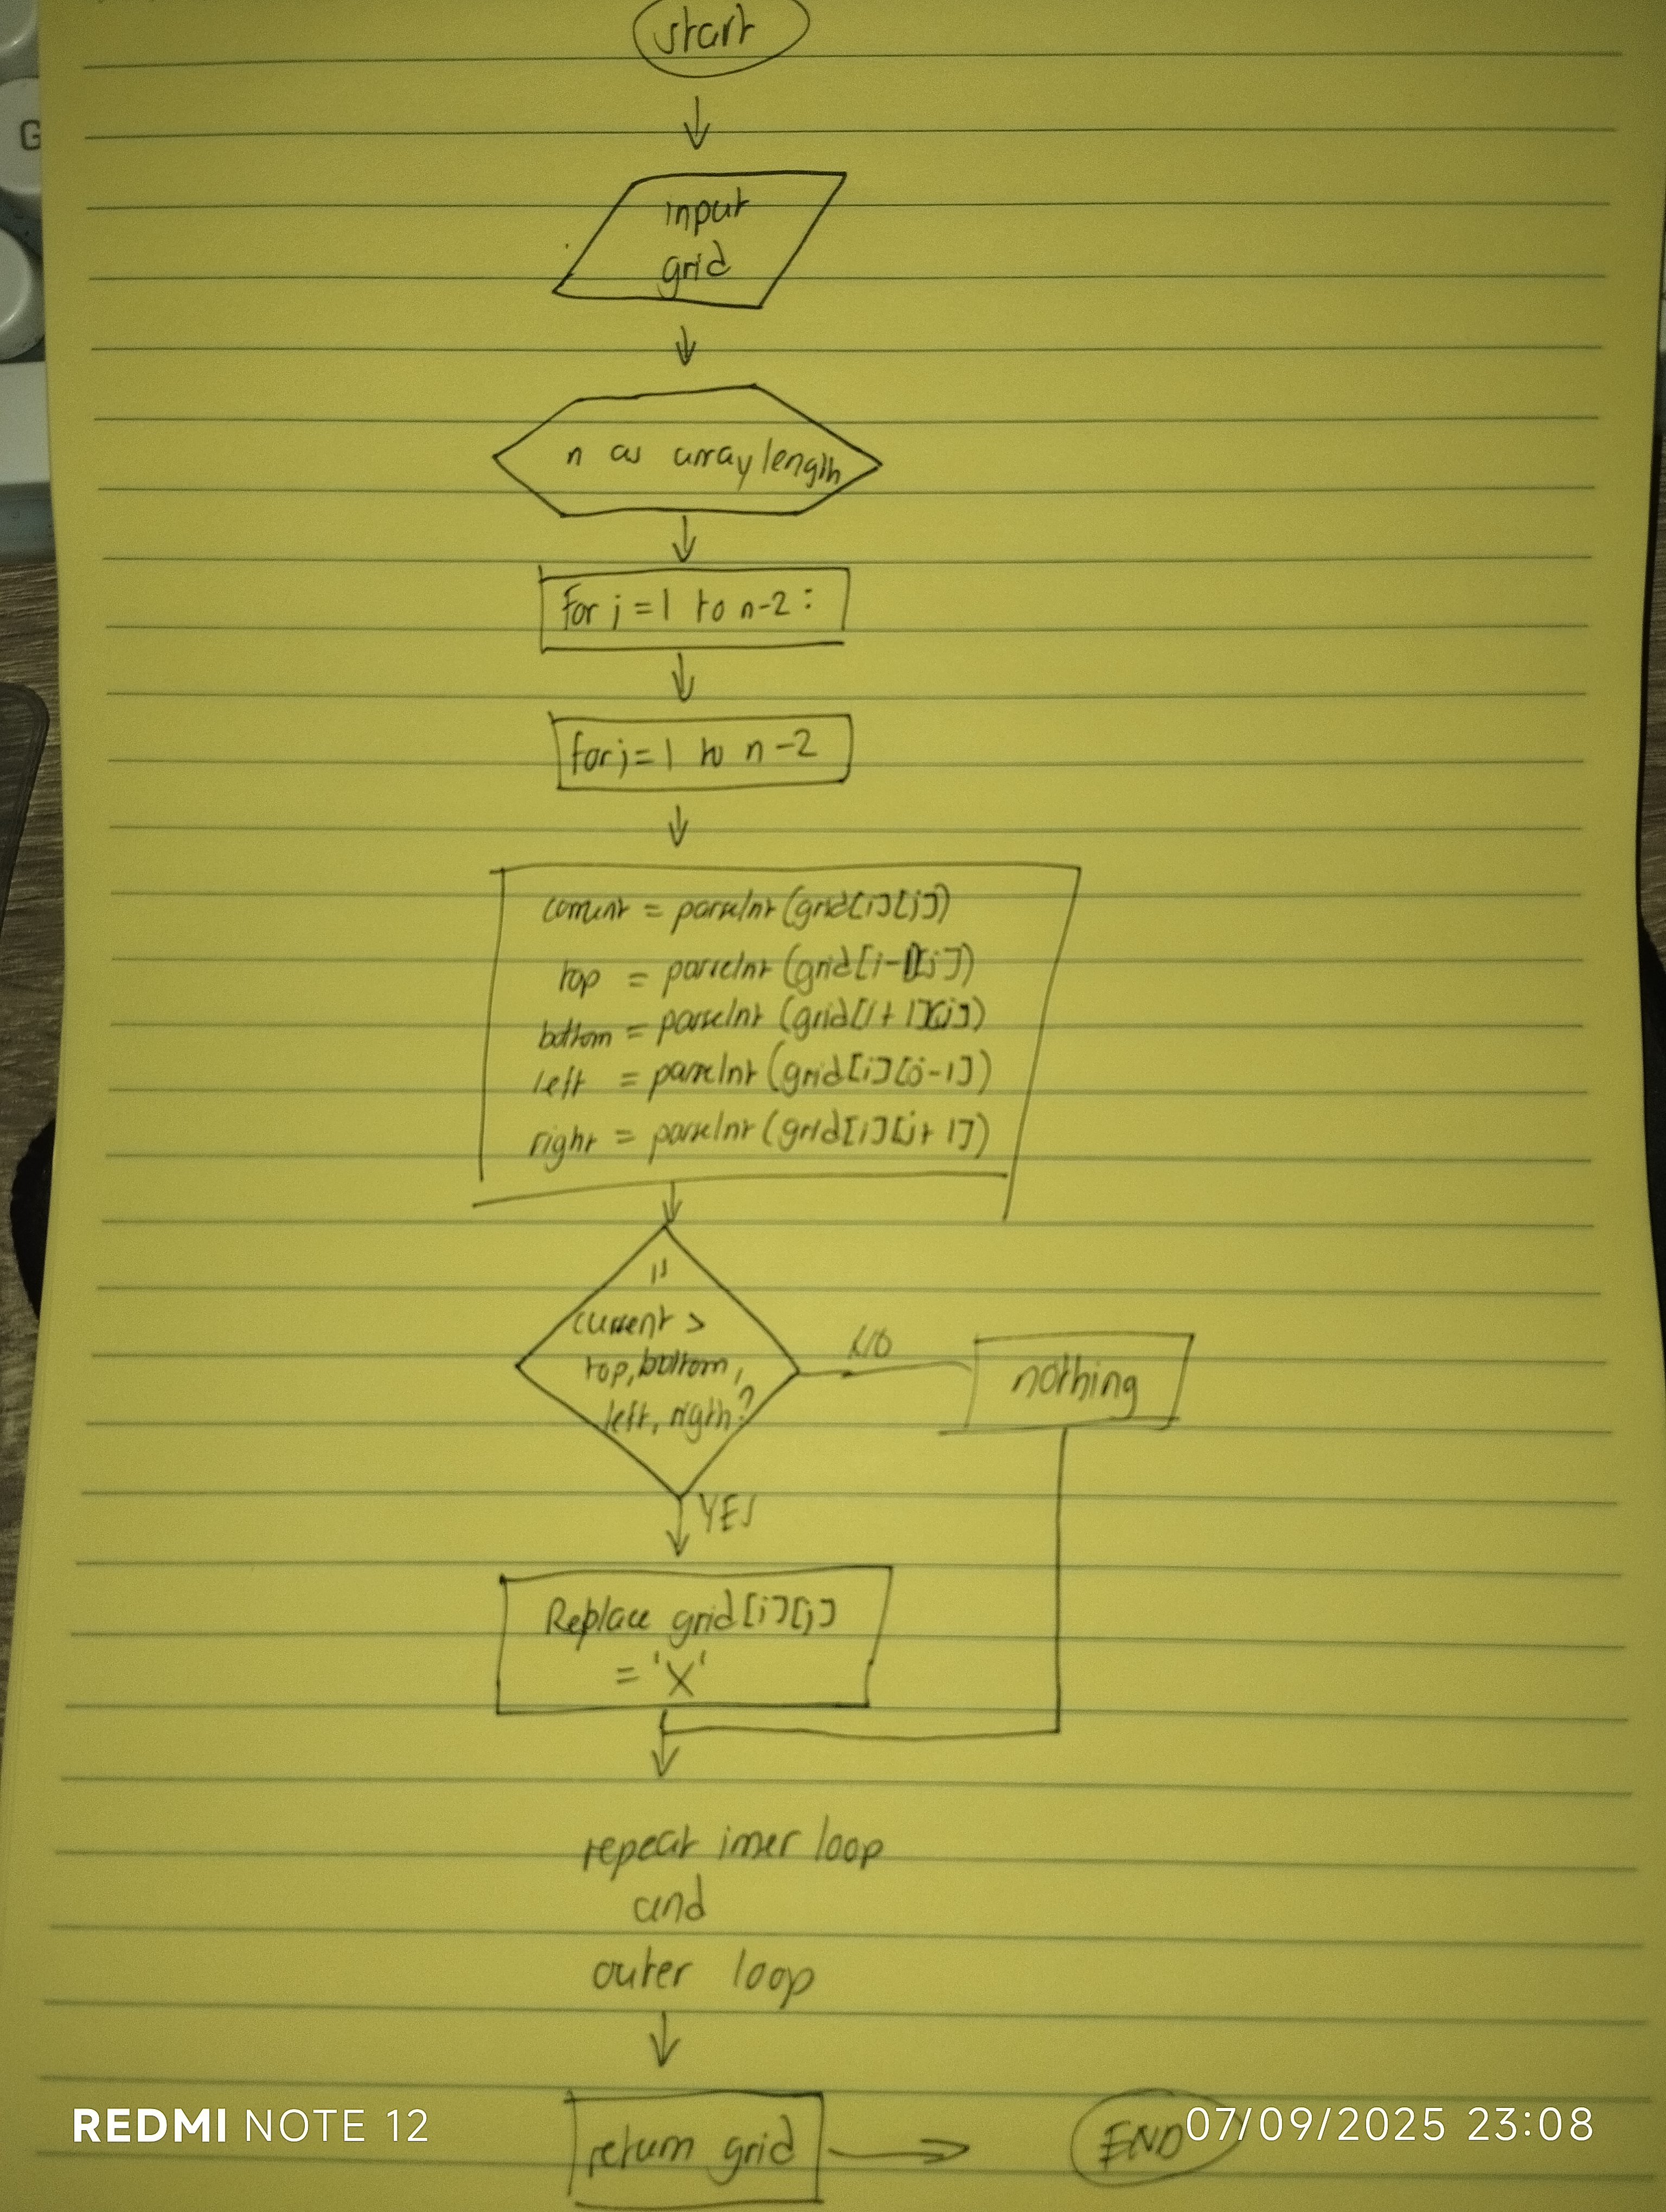 start
input
grid
n as array length
for j = 1 to n-2 :
for j = 1 to n-2
current = parseInt (grid[i][j])
top = parseInt (grid[i-1][j])
bottom = parseInt (grid[i+1][j])
left = parseInt (grid[i][j-1])
right = parseInt (grid[i][j+1])
is
current >
top, bottom,
left, rigth?
NO
nothing
YES
Replace grid[i][j]
= 'X'
repeat inner loop
and
outer loop
return grid
END
REDMI NOTE 12
07/09/2025 23:08
G